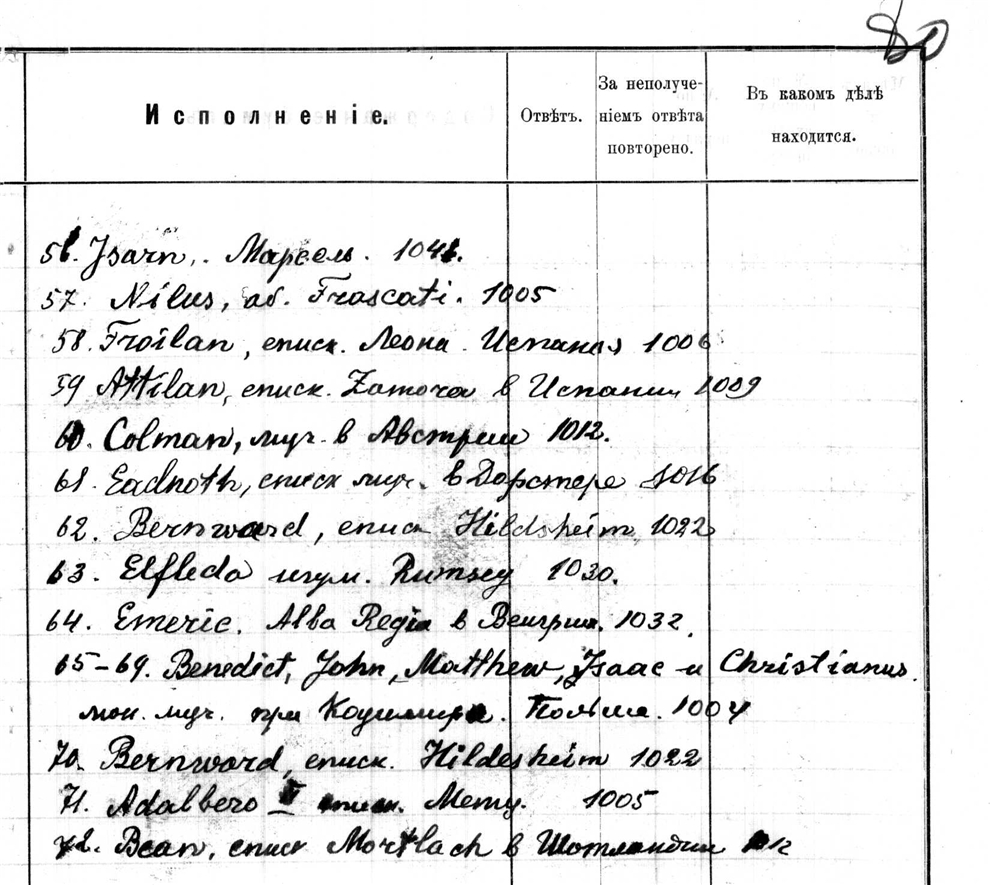 80
Исполненіе.
Отвѣтъ.
За неполуче-
ніемъ отвѣта
повторено.
Въ какомъ дѣлѣ
находится.
56. Isarn,. Марсель. 1048.
57. Nilus, аб. Frascati. 1005
58. Froilan, еписк. Леона. Испания 1006
59 Attilan, еписк. Zamora в Испании 1009
60. Colman, муч. в Австрии 1012.
61. Eadnoth, еписк муч. в Дорстере 1016
62. Bernward, еписк Hildsheim 1022
63. Elfleda игум. Rumsey 1030.
64. Emeric. Alba Regia в Венгрии. 1032.
65-69. Benedict, John, Matthew, Isaac и Christianus.
мон. муч. при Кодимира. Польша. 1004
70. Bernward, еписк. Hildesheim 1022
71. Adalbero II еписк. Метц. 1005
72. Bean, еписк Mortlach в Шотландии